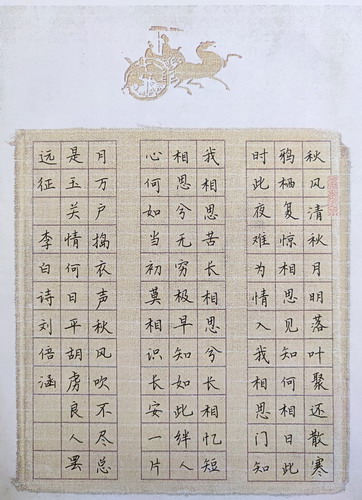 秋风清秋月明落叶聚还散寒
鸦栖复惊相思见知何日此
时此夜难为情入我相思门知
我相思苦长相思兮长相忆短
相思兮无穷极早知如此绊人
心何如当初莫相识长安一片
月万户捣衣声秋风吹不尽总
是玉关情何日平胡虏良人罢
远征 李白诗刘倍涵